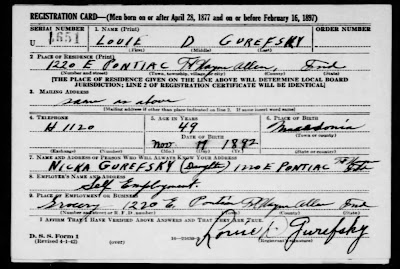 REGISTRATION CARD—(Men born on or after April 28, 1877 and on or before February 16, 1897)
SERIAL NUMBER 1. NAME (Print) ORDER NUMBER
U 1651 LOUIE D GUREFSKY
(First) (Middle) (Last)
2. PLACE OF RESIDENCE (Print)
1220 E PONTIAC Ft Wayne Allen Ind
(Number and street) (Town, township, village, or city) (County) (State)
[THE PLACE OF RESIDENCE GIVEN ON THE LINE ABOVE WILL DETERMINE LOCAL BOARD
JURISDICTION; LINE 2 OF REGISTRATION CERTIFICATE WILL BE IDENTICAL]
3. MAILING ADDRESS
same as above
[Mailing address if other than place indicated on line 2. If same insert word same]
4. TELEPHONE 5. AGE IN YEARS 6. PLACE OF BIRTH
H 1120 49 Macedonia
DATE OF BIRTH (Town or county)
Nov 17 1892
(Exchange) (Number) (Mo.) (Day) (Yr.) (State or country)
7. NAME AND ADDRESS OF PERSON WHO WILL ALWAYS KNOW YOUR ADDRESS
NICKA GUREFSKY (Daughter) 1220 E PONTIAC Ft Wayne
8. EMPLOYER'S NAME AND ADDRESS
Self Employment
9. PLACE OF EMPLOYMENT OR BUSINESS
Grocery 1220 E. Pontiac Ft Wayne Allen Ind
(Number and street or R. F. D. number) (Town) (County) (State)
I AFFIRM THAT I HAVE VERIFIED ABOVE ANSWERS AND THAT THEY ARE TRUE.
D. S. S. Form 1
(Revised 4-1-42) (over) Louie D. Gurefsky
(Registrant's signature)